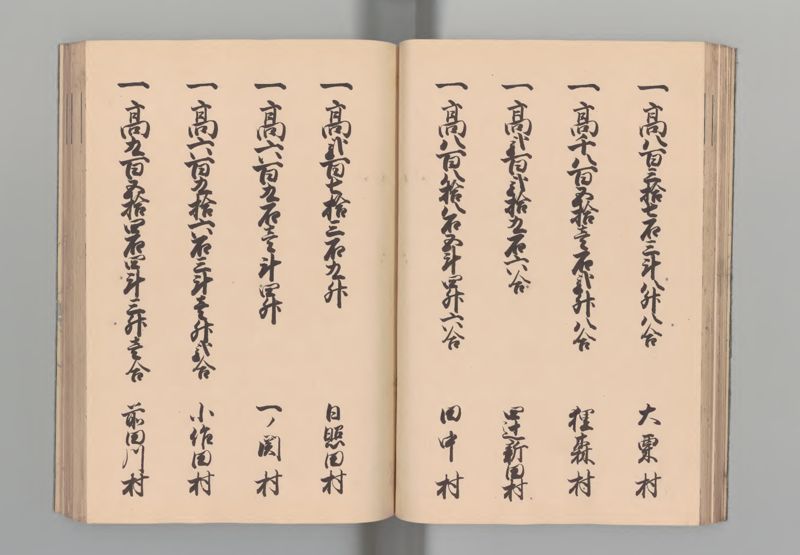 一高八百三拾七石三斗八升八合　大栗村
一高千八百五拾壱石弐升八合　狸森村
一高弐百弐拾九石六合　田辺新田村
一高八百八拾八石五斗四升六合　田中村
一高弐百七拾三石九升　日照田村
一高六百九石壱斗四升　一ノ関村
一高六百九拾六石三斗壱升弐合　小作田村
一高九百五拾四石四斗三升壱合　前田川村